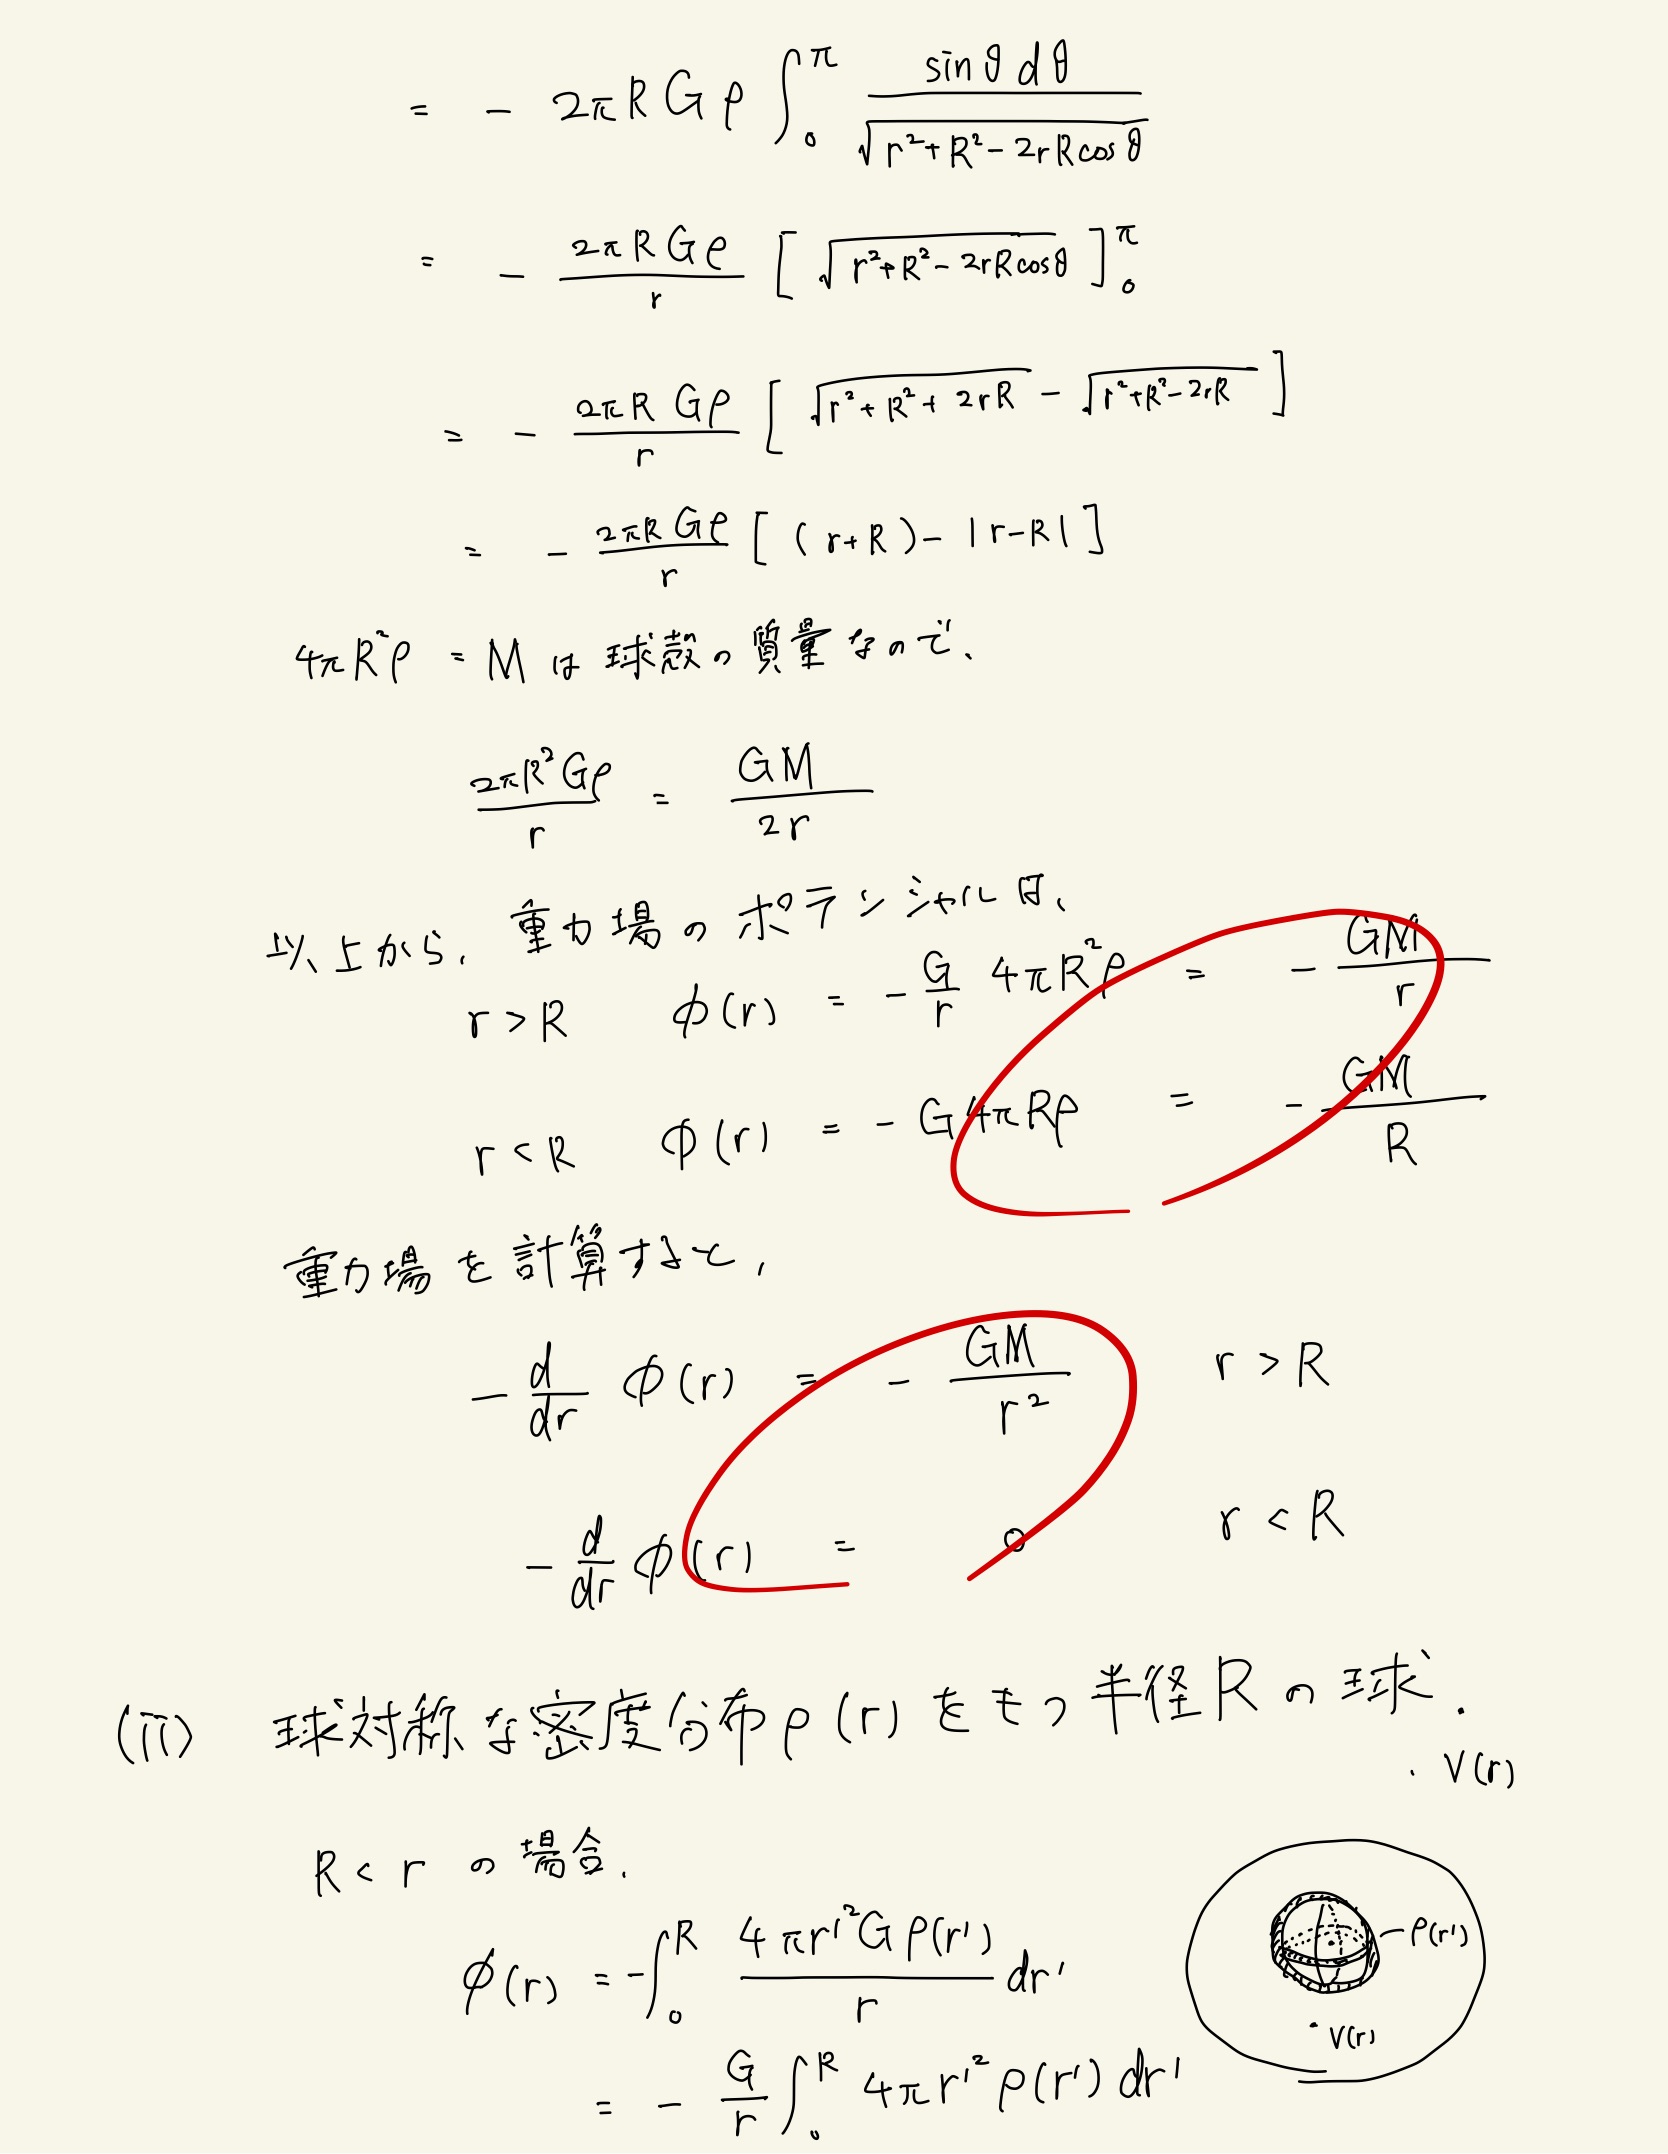 = - 2πRGρ ∫₀^π sinθdθ / √(r²+R²-2rRcosθ)
= - 2πRGρ/r [ √(r²+R²-2rRcosθ) ]₀^π
= - 2πRGρ/r [ √(r²+R²+2rR) - √(r²+R²-2rR) ]
= - 2πRGρ/r [ (r+R) - |r-R| ]
4πR²ρ = M は球殻の質量なので、
2πR²Gρ/r = GM/2r
以上から、重力場のポテンシャルは、
r>R φ(r) = - G/r 4πR²ρ = - GM/r
r<R φ(r) = - G4πRρ = - GM/R
重力場を計算すると,
- d/dr φ(r) = - GM/r² r>R
- d/dr φ(r) = 0 r<R
(ii) 球対称な密度分布ρ(r)をもつ半径Rの球.
・V(r)
R<r の場合.
φ(r) = -∫₀^R 4πr'²Gρ(r')/r dr'
ρ(r')
・V(r)
= - G/r ∫₀^R 4πr'²ρ(r')dr'